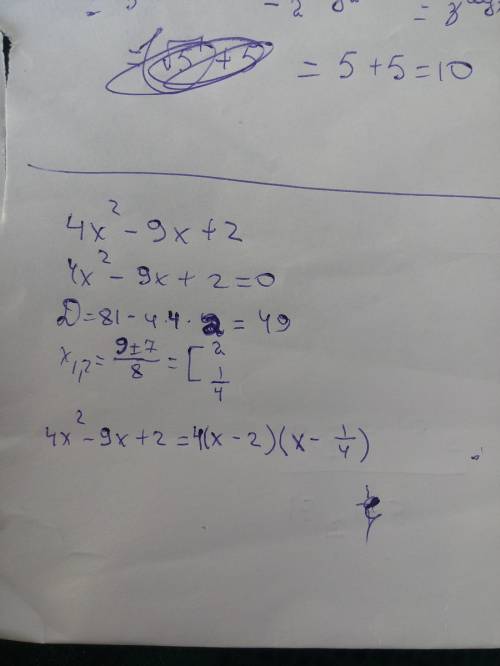 = 5 + 5 = 10
4x² - 9x + 2
4x² - 9x + 2 = 0
D = 81 - 4 · 4 · 2 = 49
x₁,₂ = (9 ± 7)/8 = [ 2
1/4
4x² - 9x + 2 = 4(x - 2)(x - 1/4)